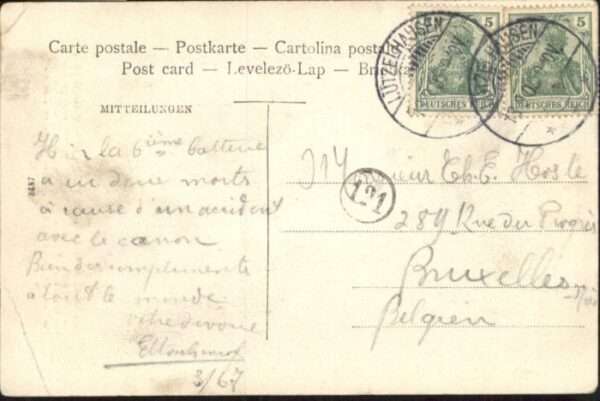 Carte postale – Postkarte – Cartolina postale
Post card – Levelező-Lap –
MITTEILUNGEN
LÜTZELHAUSEN
5
5
DEUTSCHES REICH
DEUTSCHES REICH
Hier la 6ième batterie
a un deux morts
à cause d'un accident
avec le canon
Bien des compliments
à tout le monde
votre dévoué
3/67
Ch. E. Hoste
289 Rue du Progrès
Bruxelles
Belgien
121